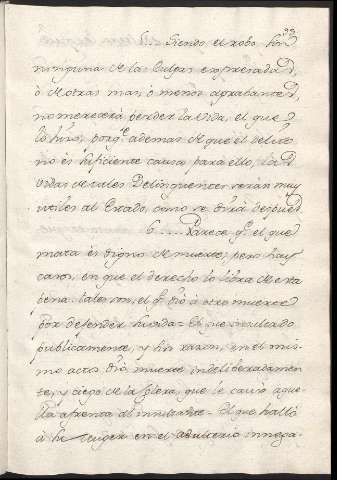 Siendo el robo sin
ninguna de las Culpas expresadas,
ó de otras mas, ó menos agravantes,
no merecerá perder la vida, el que
lo hizo; porq.e ademas de que el delito
no es suficiente causa para ello, las
vidas de tales Delinquentes serian muy
utiles al Estado, como se dirá despues
6 Parece q.e el que
mata es digno de muerte; pero hay
casos, en que el derecho lo libra de esta
pena. tales son, el q.e dió á otro muerte
por defender su vida = El que insultado
publicamente, y sin razon, en el mis-
mo acto dió muerte indeliberadamen-
te, y ciego de la colera, que le causó aque-
lla afrenta al insultante = El que halló
á su Muger en el adulterio innega-